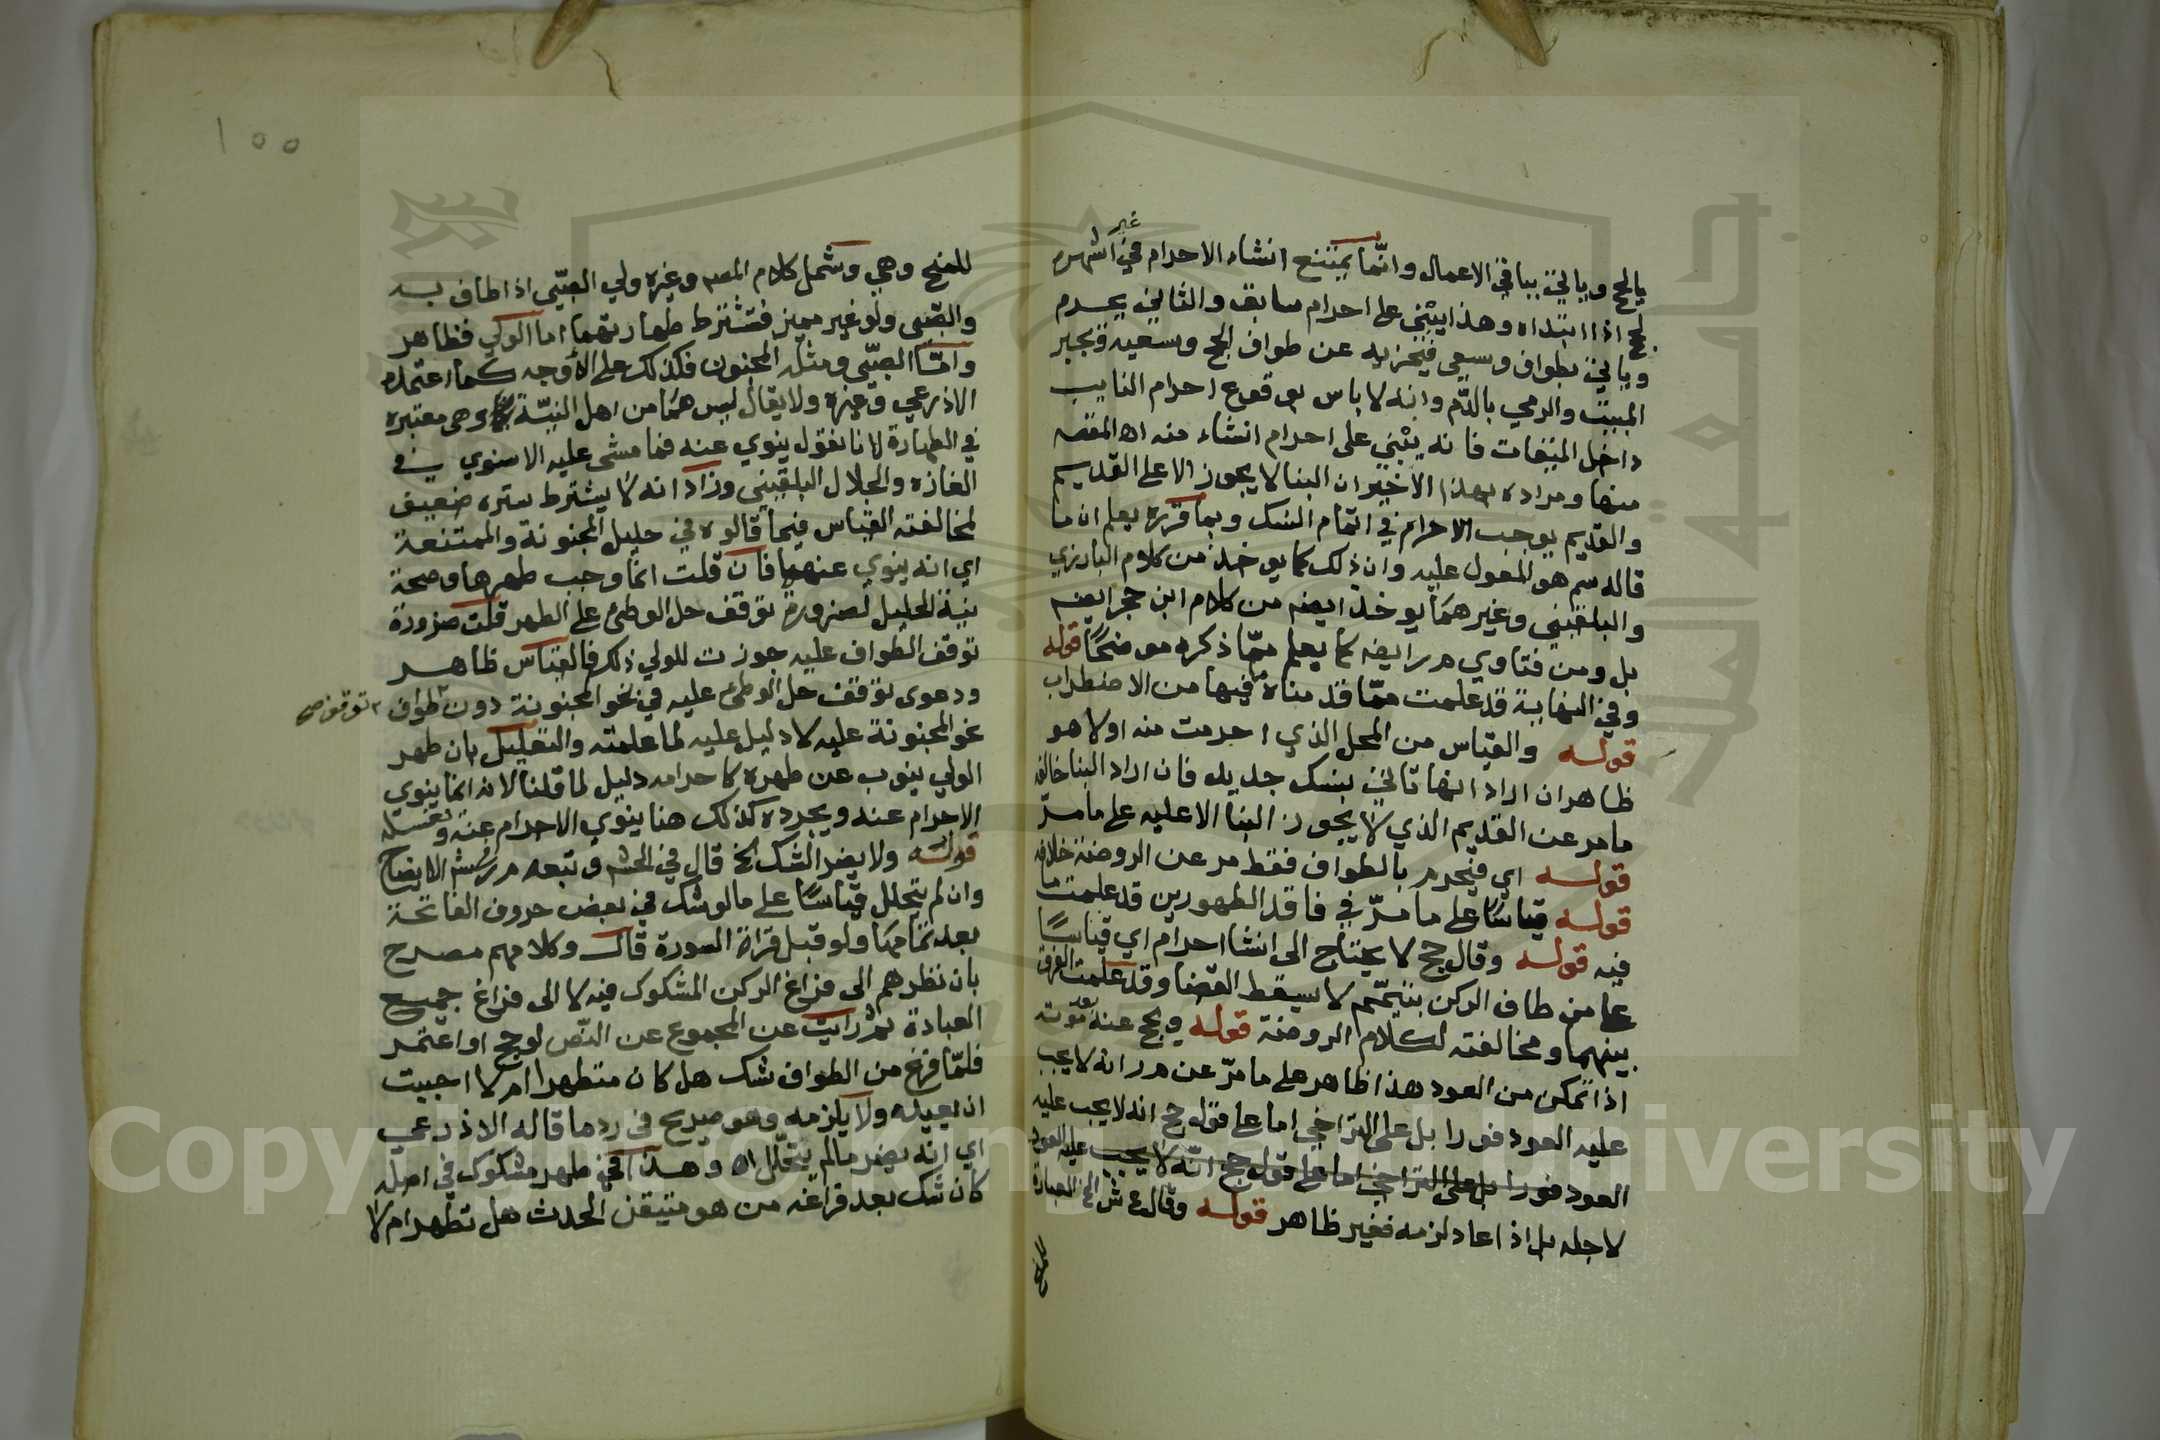 غير
بالحج وياتي بباقي الاعمال وانما يمتنع انشاء الاحرام في اشهره
لحج اذا ابتداه وهذا ينبني على احرام سابق والثاني يحرم
وياتي بطواف وسعي فيجزيه عن طواف الحج وسعيه وتجبر
المبيت والرمي بالدم وانه لا باس بوقوع احرام النايب
داخل الميقات فانه ينبني على احرام انشاء منه اه المقصـ
منها ومراده بهذا الاخير ان البنا لا يجوز الا على القديم
والقديم يوجب الاحرام في اتمام النسك وبما قرره يعلم ان ما
قاله سم هو المعول عليه وان ذلك كما يوخذ من كلام البارزي
والبلقيني وغيرهما يوخذ ايضه من كلام ابن حجر ايضه
بل ومن فتاوي م ر ايضه كما يعلم مما ذكره موضحا قوله
وفي النهاية قد علمت مما قدمناه ما فيها من الاضطراب
قوله والقياس من المحل الذي احرمت منه اولا هو
ظاهر ان اراد انها تاتي بنسك جديد فان اراد البنا خالفه
ما مر عن القديم الذي لا يجوز البنا الا عليه على ما مر
قوله اي فيحرم بالطواف فقط مر عن الروضة خلافه
قوله قياسا على ما مر في فاقد الطهورين قد علمت ما
فيه قوله وقال حج لا يحتاج الى انشا احرام اي قياسا
على من طاف الركن بتيمم لا يسقط القضا وقد علمت الفرق
بينهما ومخالفته لكلام الروضة قوله ويحج عنه بعد موته
اذا تمكن من العود هذا ظاهر على ما مر عن م ر انه لا يجب
عليه العود فورا بل على التراخي اما على قول حج انه لا يجب عليه
العود فورا بل على التراخي اما على قول حج انه لا يجب عليه العود
لاجله بل اذا عاد لزمه فغير ظاهر قوله وقال ع ش الخ العبادة
١٥٥
للمنهج وهي وشمل كلام المصـ وغيره ولي الصبي اذا طاف به
والصبي ولو غير مميز فتشترط طهارتهما اما الولي فظاهر
واما الصبي ومثله المجنون فكذلك على الاوجه كما اعتمده
الاذرعي وغيره ولا يقال ليس هما من اهل النية وهي معتبره
في الطهارة لانا نقول ينوي عنه فما مشى عليه الاسنوي في
الغازه والجلال البلقيني وزاد انه لا يشترط ستره ضعيف
لمخالفته القياس فيما قالوه في حليل المجنونة والممتنعة
اي انه ينوي عنهما فان قلت انما وجب طهرها وصحة
نية الحليل لضرورة توقف حل الوطئ على الطهر قلت ضرورة
توقف الطواف عليه جوزت للولي ذلك فالقياس ظاهر
ودعوى توقف حل الوطئ عليه في نحو المجنونة دون طواف
توقف صح
نحو المجنونة عليه لا دليل عليه لما علمته والتعليل بان طهر
الولي ينوب عن طهره كاحرامه دليل لما قلنا لانه انما ينوي
الاحرام عنه ويجرده كذلك هنا ينوي الاحرام عنه ويغسله
قوله ولا يضر الشك الخ قال في الحشـ وتبعه م ر في شـ الايضاح
وان لم يتحلل قياسا على ما لو شك في بعض حروف الفاتحة
بعد تمامها ولو قبل قراة السورة قال وكلامهم مصرح
بان نظرهم الى فراغ الركن المشكوك فيه لا الى فراغ جميع
العبادة ثم رايت عن المجموع عن النص لو حج او اعتمر
فلما فرغ من الطواف شك هل كان متطهرا ام لا احببت
ان يعيده ولا يلزمه وهو صريح في رد ما قاله الاذرعي
اي انه يضر ما لم يتحلل اه وهذا في طهر مشكوك في اصله
كان شك بعد فراغه من هو متيقن الحدث هل تطهر ام لا
Copyright © King Saud University
جامعة الملك